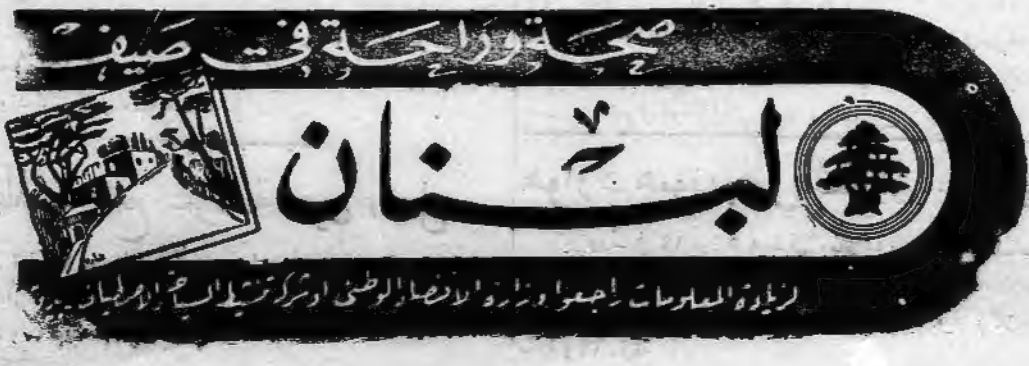 صحة وراحة في صيف
لبنان
لزيادة المعلومات راجعوا وزارة الاقتصاد الوطني او شركة تنشيط السياحة والاصطياف